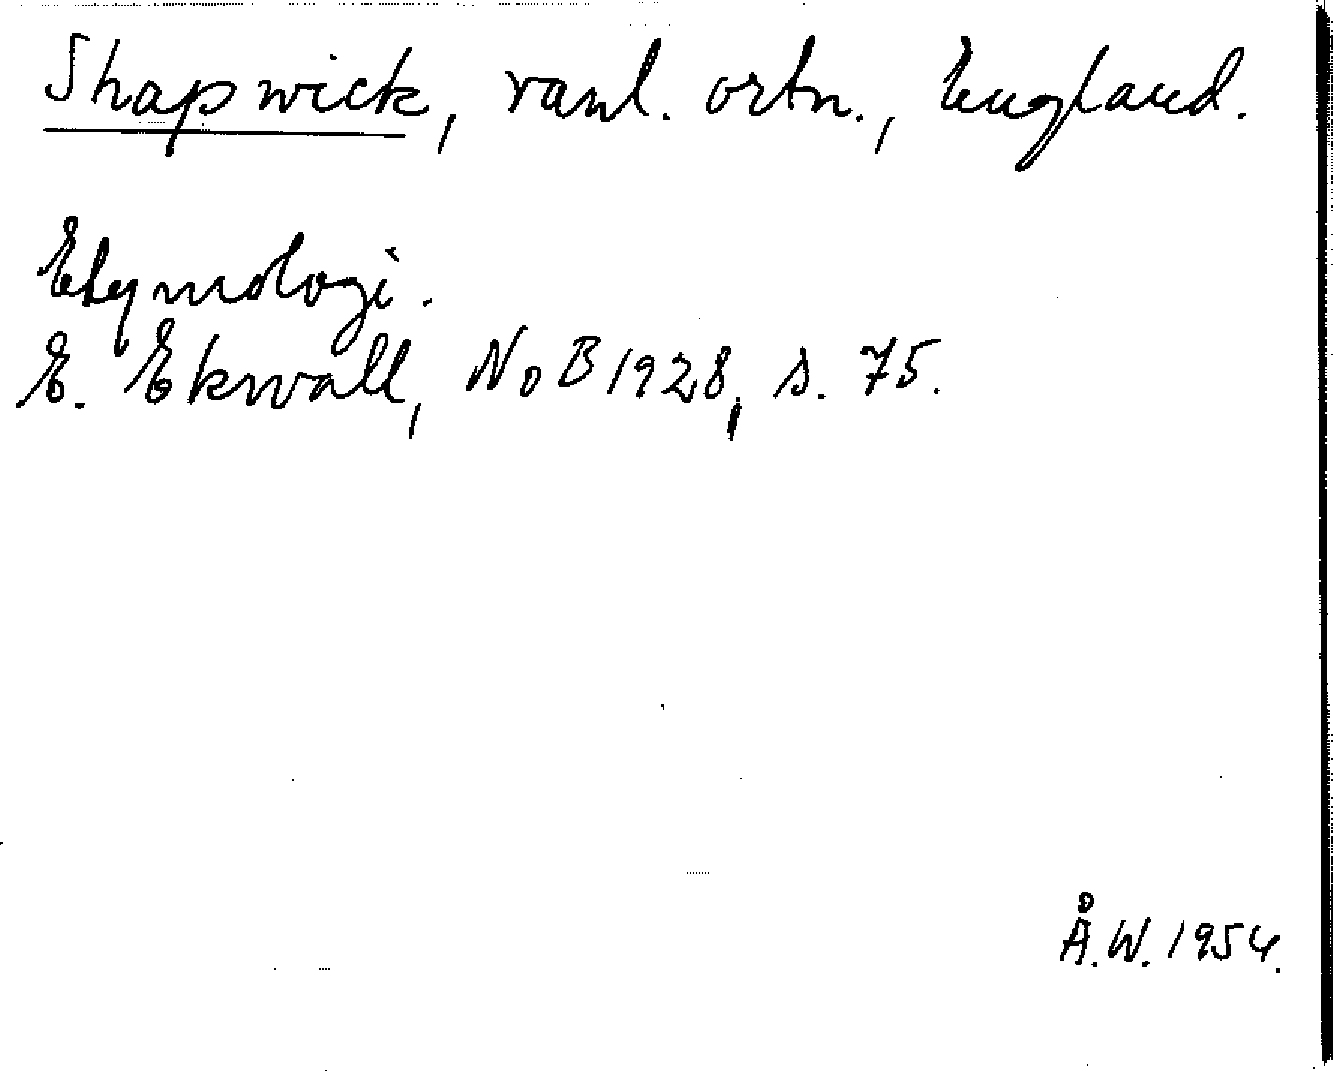 Shapwick, vanl. ortn., England.
Etymologi.
E. Ekwall, NoB 1928, s. 75.
Å.W. 1954.